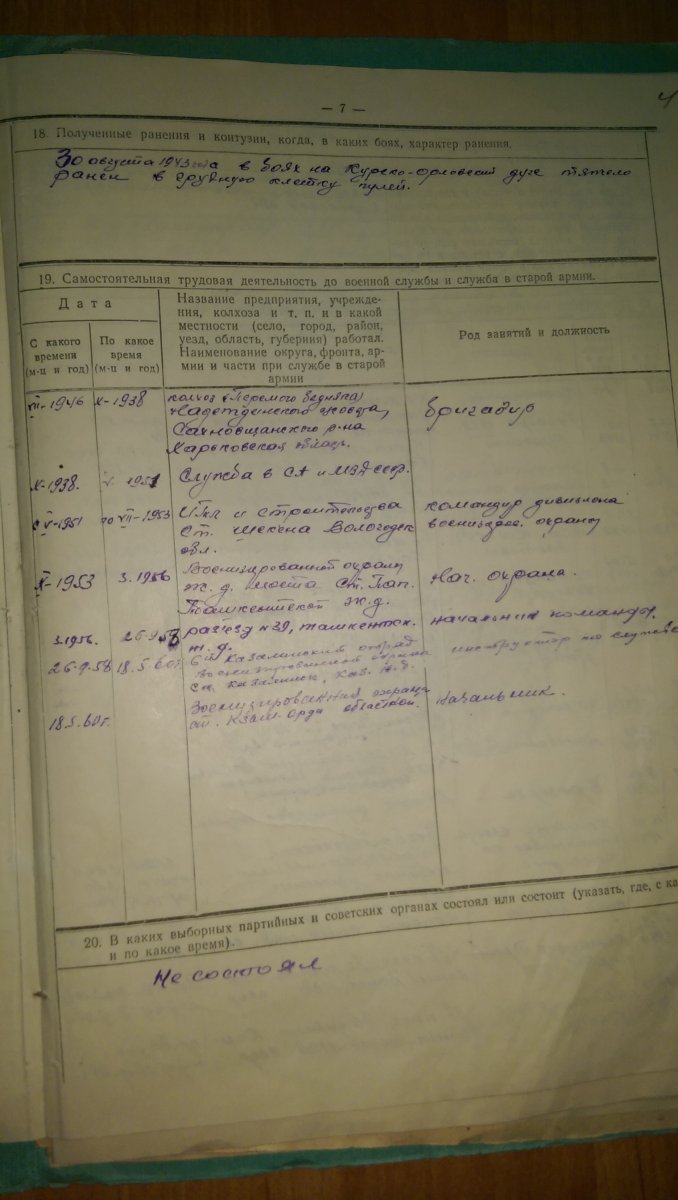 — 7 —
4
18. Полученные ранения и контузии, когда, в каких боях, характер ранения.
30 августа 1943 года в боях на Курско-Орловской дуге тяжело
ранен в грудную клетку пулей.
19. Самостоятельная трудовая деятельность до военной службы и служба в старой армии.
Дата
С какого
времени
(м-ц и год)
По какое
время
(м-ц и год)
Название предприятия, учрежде-
ния, колхоза и т. п. и в какой
местности (село, город, район,
уезд, область, губерния) работал.
Наименование округа, фронта, ар-
мии и части при службе в старой
армии
Род занятий и должность
-1946 X-1938 колхоз
Надеждинского
Сахновщанского р-на
Харьковская область.
бригадир
X-1938. V 1951 Служба в СА и МВД ссср.
с V-1951 по VII-1953 и строительства
ст. Шексна Вологодск
обл.
командир дивизиона
охраны
X-1953 3.1956 Военизированной охраны
ж. д. моста ст.
Ташкентской ж.д.
Нач. охраны.
3.1956. 26-9.58 разъезд №39, ташкентск.
ж. д.
начальник команды.
26-9-58 18.5.60г. 6й Казалинский отряд
военизированной охраны
ст. Казалинск, Каз. ж.д.
инструктор по службе
18.5.60г. Военизированная охрана
ст. Кзыл-Орда областной.
начальник.
20. В каких выборных партийных и советских органах состоял или состоит (указать, где, с ка
и по какое время).
Не состоял